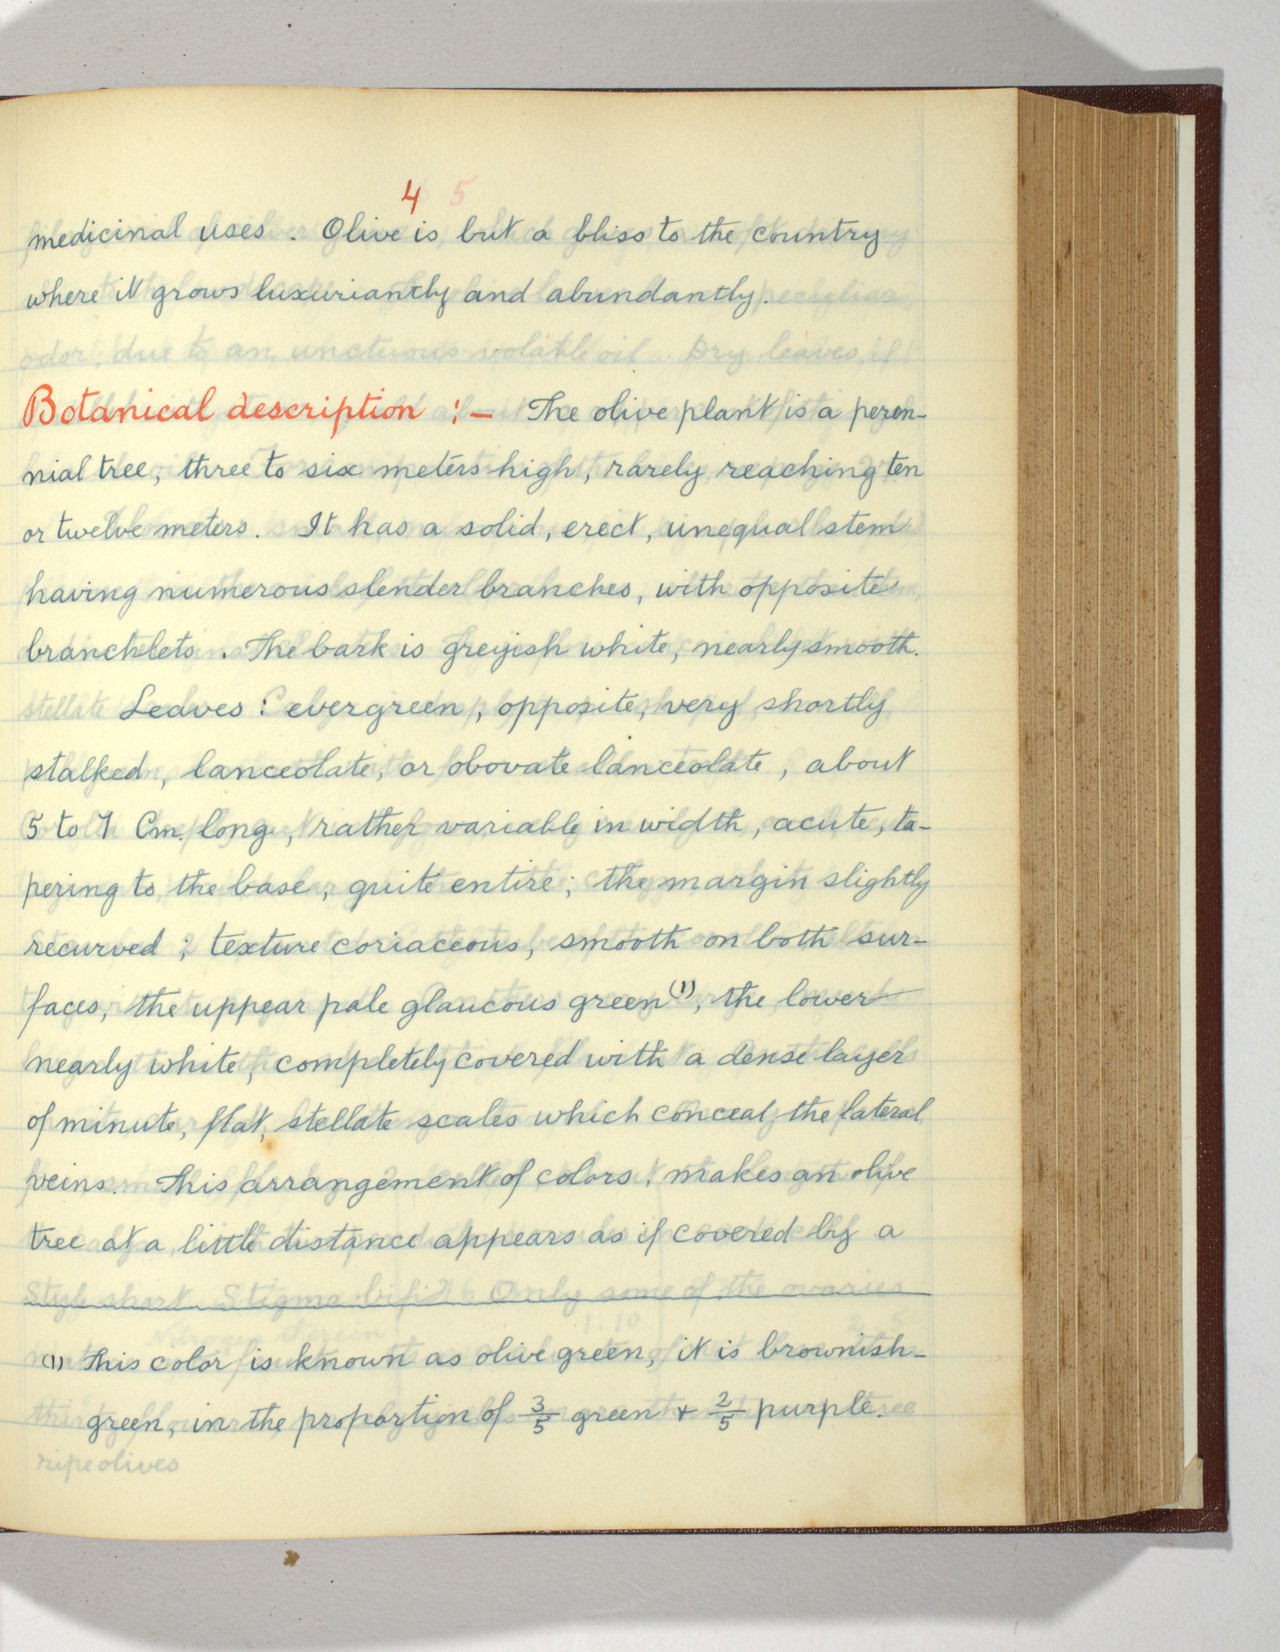 4
medicinal uses. Olive is but a bliss to the country
where it grows luxuriantly and abundantly.
Botanical description :- The olive plant is a peren-
nial tree, three to six meters high, rarely reaching ten
or twelve meters. It has a solid, erect, unequal stem
having numerous slender branches, with opposite
branchlets. The bark is greyish white, nearly smooth.
Leaves : evergreen, opposite, very shortly
stalked, lanceolate, or obovate lanceolate, about
5 to 7 Cm. long, rather variable in width, acute, ta-
pering to the base, quite entire; the margin slightly
recurved; texture coriaceous, smooth on both sur-
faces, the uppear pale glaucous green(1), the lower
nearly white, completely covered with a dense layer
of minute, flat, stellate scales which conceal the lateral
veins. This arrangement of colors, makes an olive
tree at a little distance appears as if covered by a
(1) This color is known as olive green, it is brownish-
green, in the proportion of 3/5 green + 2/5 purple.